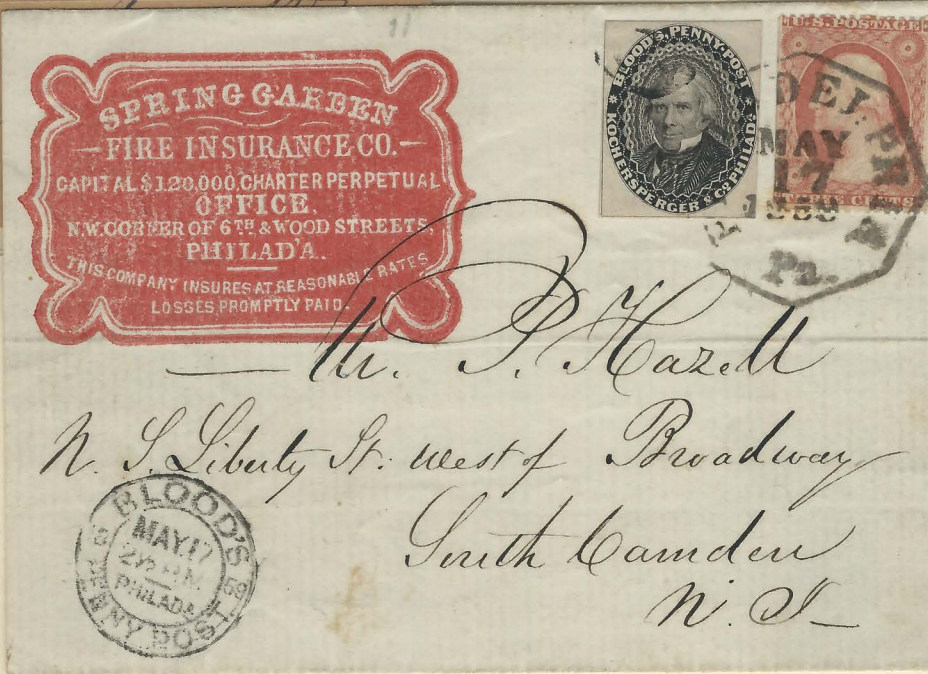 SPRING GARDEN
FIRE INSURANCE CO.
CAPITAL $120,000, CHARTER PERPETUAL
OFFICE,
N.W. CORNER OF 6TH & WOOD STREETS,
PHILAD'A.
THIS COMPANY INSURES AT REASONABLE RATES
LOSSES PROMPTLY PAID.
BLOOD'S PENNY-POST
KOCHERSPERGER & CO PHILADA
U.S. POSTAGE
THREE CENTS
MAY
17
Pa.
Mr. P. Hazell
N. S. Liberty St. west of Broadway
South Camden
N. J
BLOOD'S
MAY 17
PHILADA
PENNY POST
59